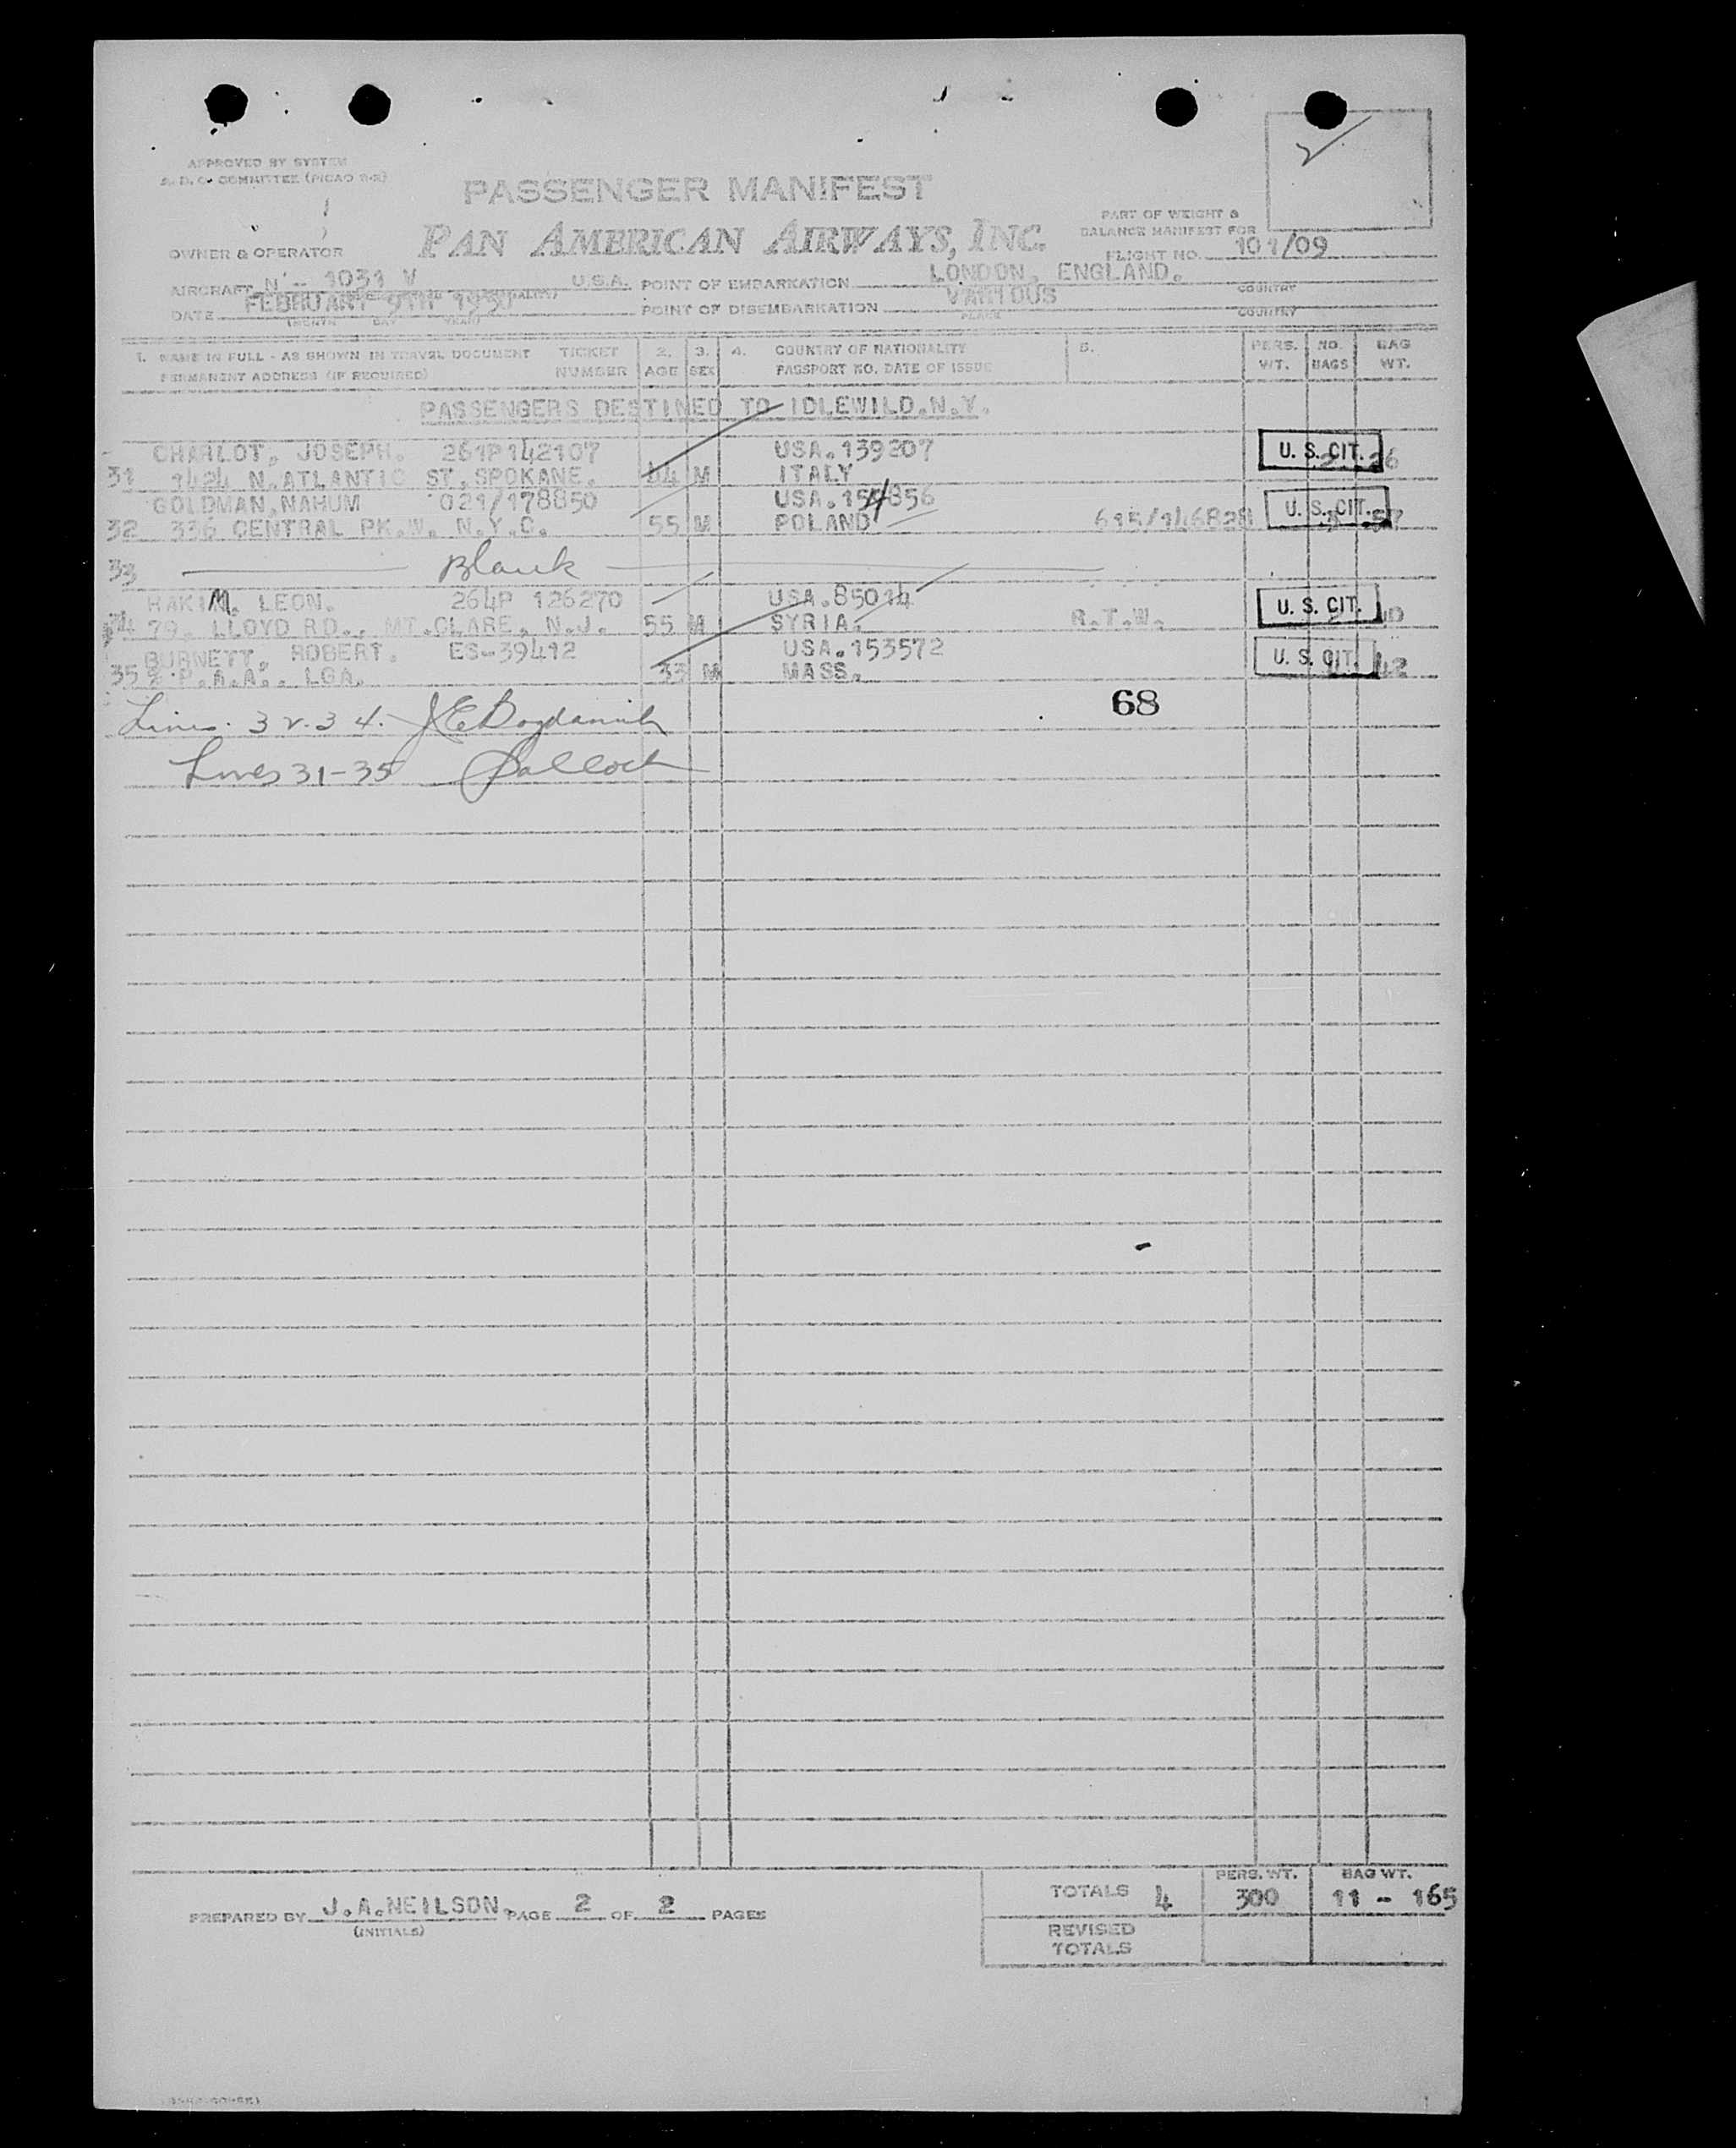 APPROVED BY SYSTEM
A.D.C. COMMITTEE (PICAO 2-2)
PASSENGER MANIFEST
PAN AMERICAN AIRWAYS, INC.
PART OF WEIGHT &
BALANCE MANIFEST FOR
OWNER & OPERATOR
FLIGHT NO. 101/09
AIRCRAFT N - 1031 V U.S.A. POINT OF EMBARKATION LONDON, ENGLAND. COUNTRY
DATE FEBRUARY 9TH 1951 POINT OF DISEMBARKATION VARIOUS COUNTRY
(MONTH DAY YEAR) PLACE
1. NAME IN FULL - AS SHOWN IN TRAVEL DOCUMENT TICKET 2. 3. 4. COUNTRY OF NATIONALITY 5. PERS. NO. BAG
PERMANENT ADDRESS (IF REQUIRED) NUMBER AGE SEX PASSPORT NO. DATE OF ISSUE WT. BAGS WT.
PASSENGERS DESTINED TO IDLEWILD.N.Y.
CHARLOT, JOSEPH. 261P142107 USA.139207 U. S. CIT.
31 1424 N.ATLANTIC ST.SPOKANE. 44 M ITALY 26
GOLDMAN,NAHUM 021/178850 USA.154856 U. S. CIT.
32 336 CENTRAL PK.W. N.Y.C. 55 M POLAND 615/146828 57
33 Blank
HAKIM. LEON. 264P 126270 USA.85014 U. S. CIT.
34 79. LLOYD RD., MT.CLARE, N.J. 55 M SYRIA. R.T.W. 40
BURNETT, ROBERT. ES-39412 USA.153572 U. S. CIT.
35 % P.A.A.. LGA. 33 M MASS. 42
68
Lines. 32.34.
Lines 31-35
TOTALS 4 PERS. WT. 300 BAG WT. 11 - 165
PREPARED BY J.A.NEILSON. PAGE 2 OF 2 PAGES
(INITIALS)
REVISED
TOTALS